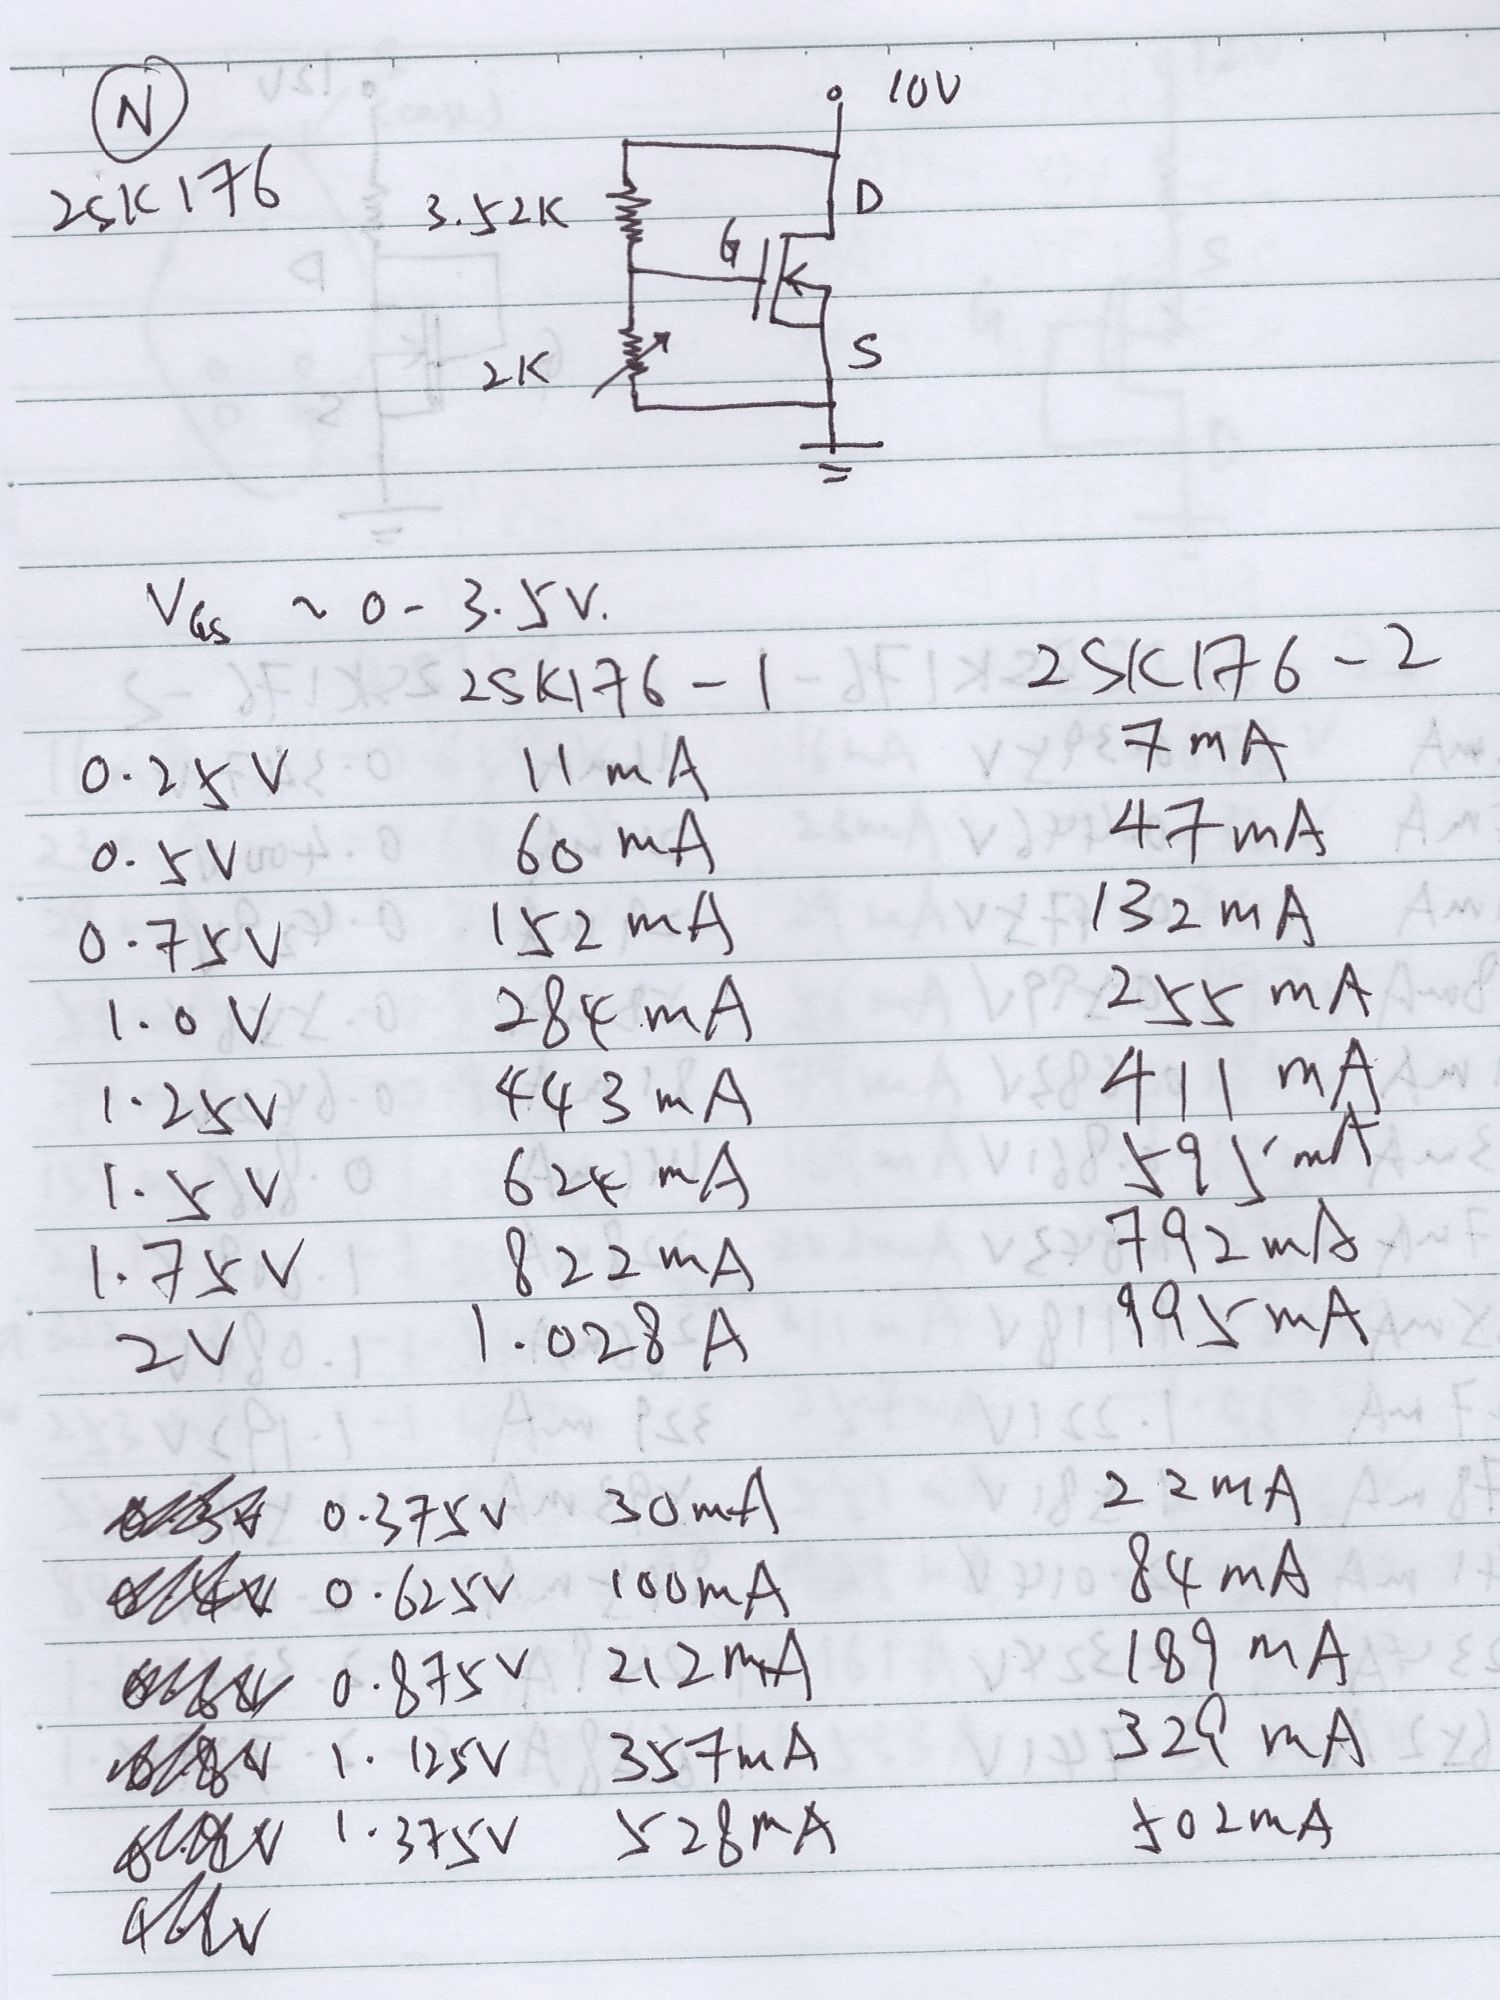 N 10V
2SK176
3.52K
D
G
2K
S
VGS ~ 0 - 3.5V.
2SK176-1 2SK176-2
0.25V 11mA 7mA
0.5V 60mA 47mA
0.75V 152mA 132mA
1.0V 284mA 255mA
1.25V 443mA 411mA
1.5V 624mA 595mA
1.75V 822mA 792mA
2V 1.028A 995mA
0.375V 30mA 22mA
0.625V 100mA 84mA
0.875V 212mA 189mA
1.125V 357mA 329mA
1.375V 528mA 502mA